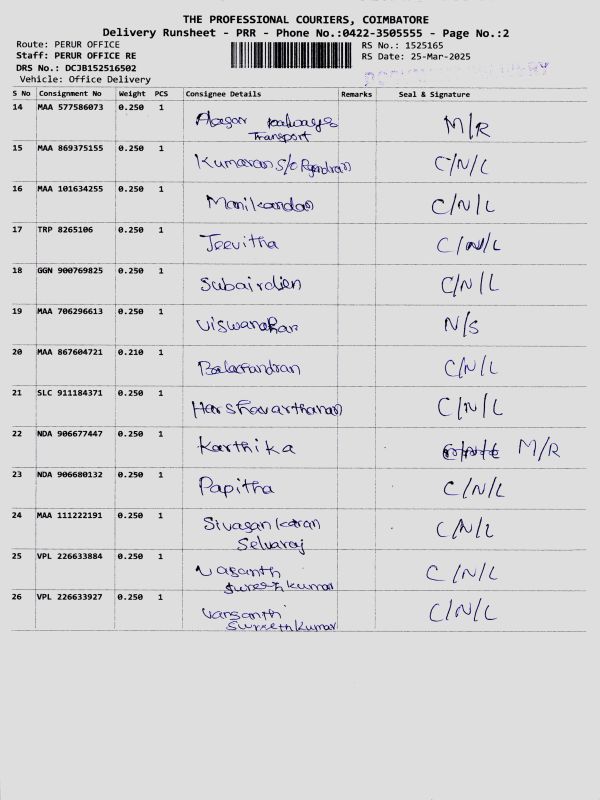 THE PROFESSIONAL COURIERS, COIMBATORE
Delivery Runsheet - PRR - Phone No.:0422-3505555 - Page No.:2
Route: PERUR OFFICE RS No.: 1525165
Staff: PERUR OFFICE RE RS Date: 25-Mar-2025
DRS No.: DCJB152516502
Vehicle: Office Delivery
S No Consignment No Weight PCS Consignee Details Remarks Seal & Signature
14 MAA 577586073 0.250 1 M/R
Transport
15 MAA 869375155 0.250 1 Kumaran S/o C/N/L
16 MAA 101634255 0.250 1 Manikandan C/N/L
17 TRP 8265106 0.250 1 Jeevitha C/N/L
18 GGN 900769825 0.250 1 Subairdien C/N/L
19 MAA 706296613 0.250 1 N/S
20 MAA 867604721 0.210 1 C/N/L
21 SLC 911184371 0.250 1 Harshavarthanan C/N/L
22 NDA 906677447 0.250 1 Karthika M/R
23 NDA 906680132 0.250 1 Papitha C/N/L
24 MAA 111222191 0.250 1 C/N/L
Selvaraj
25 VPL 226633884 0.250 1 Vasanth C/N/L
26 VPL 226633927 0.250 1 C/N/L